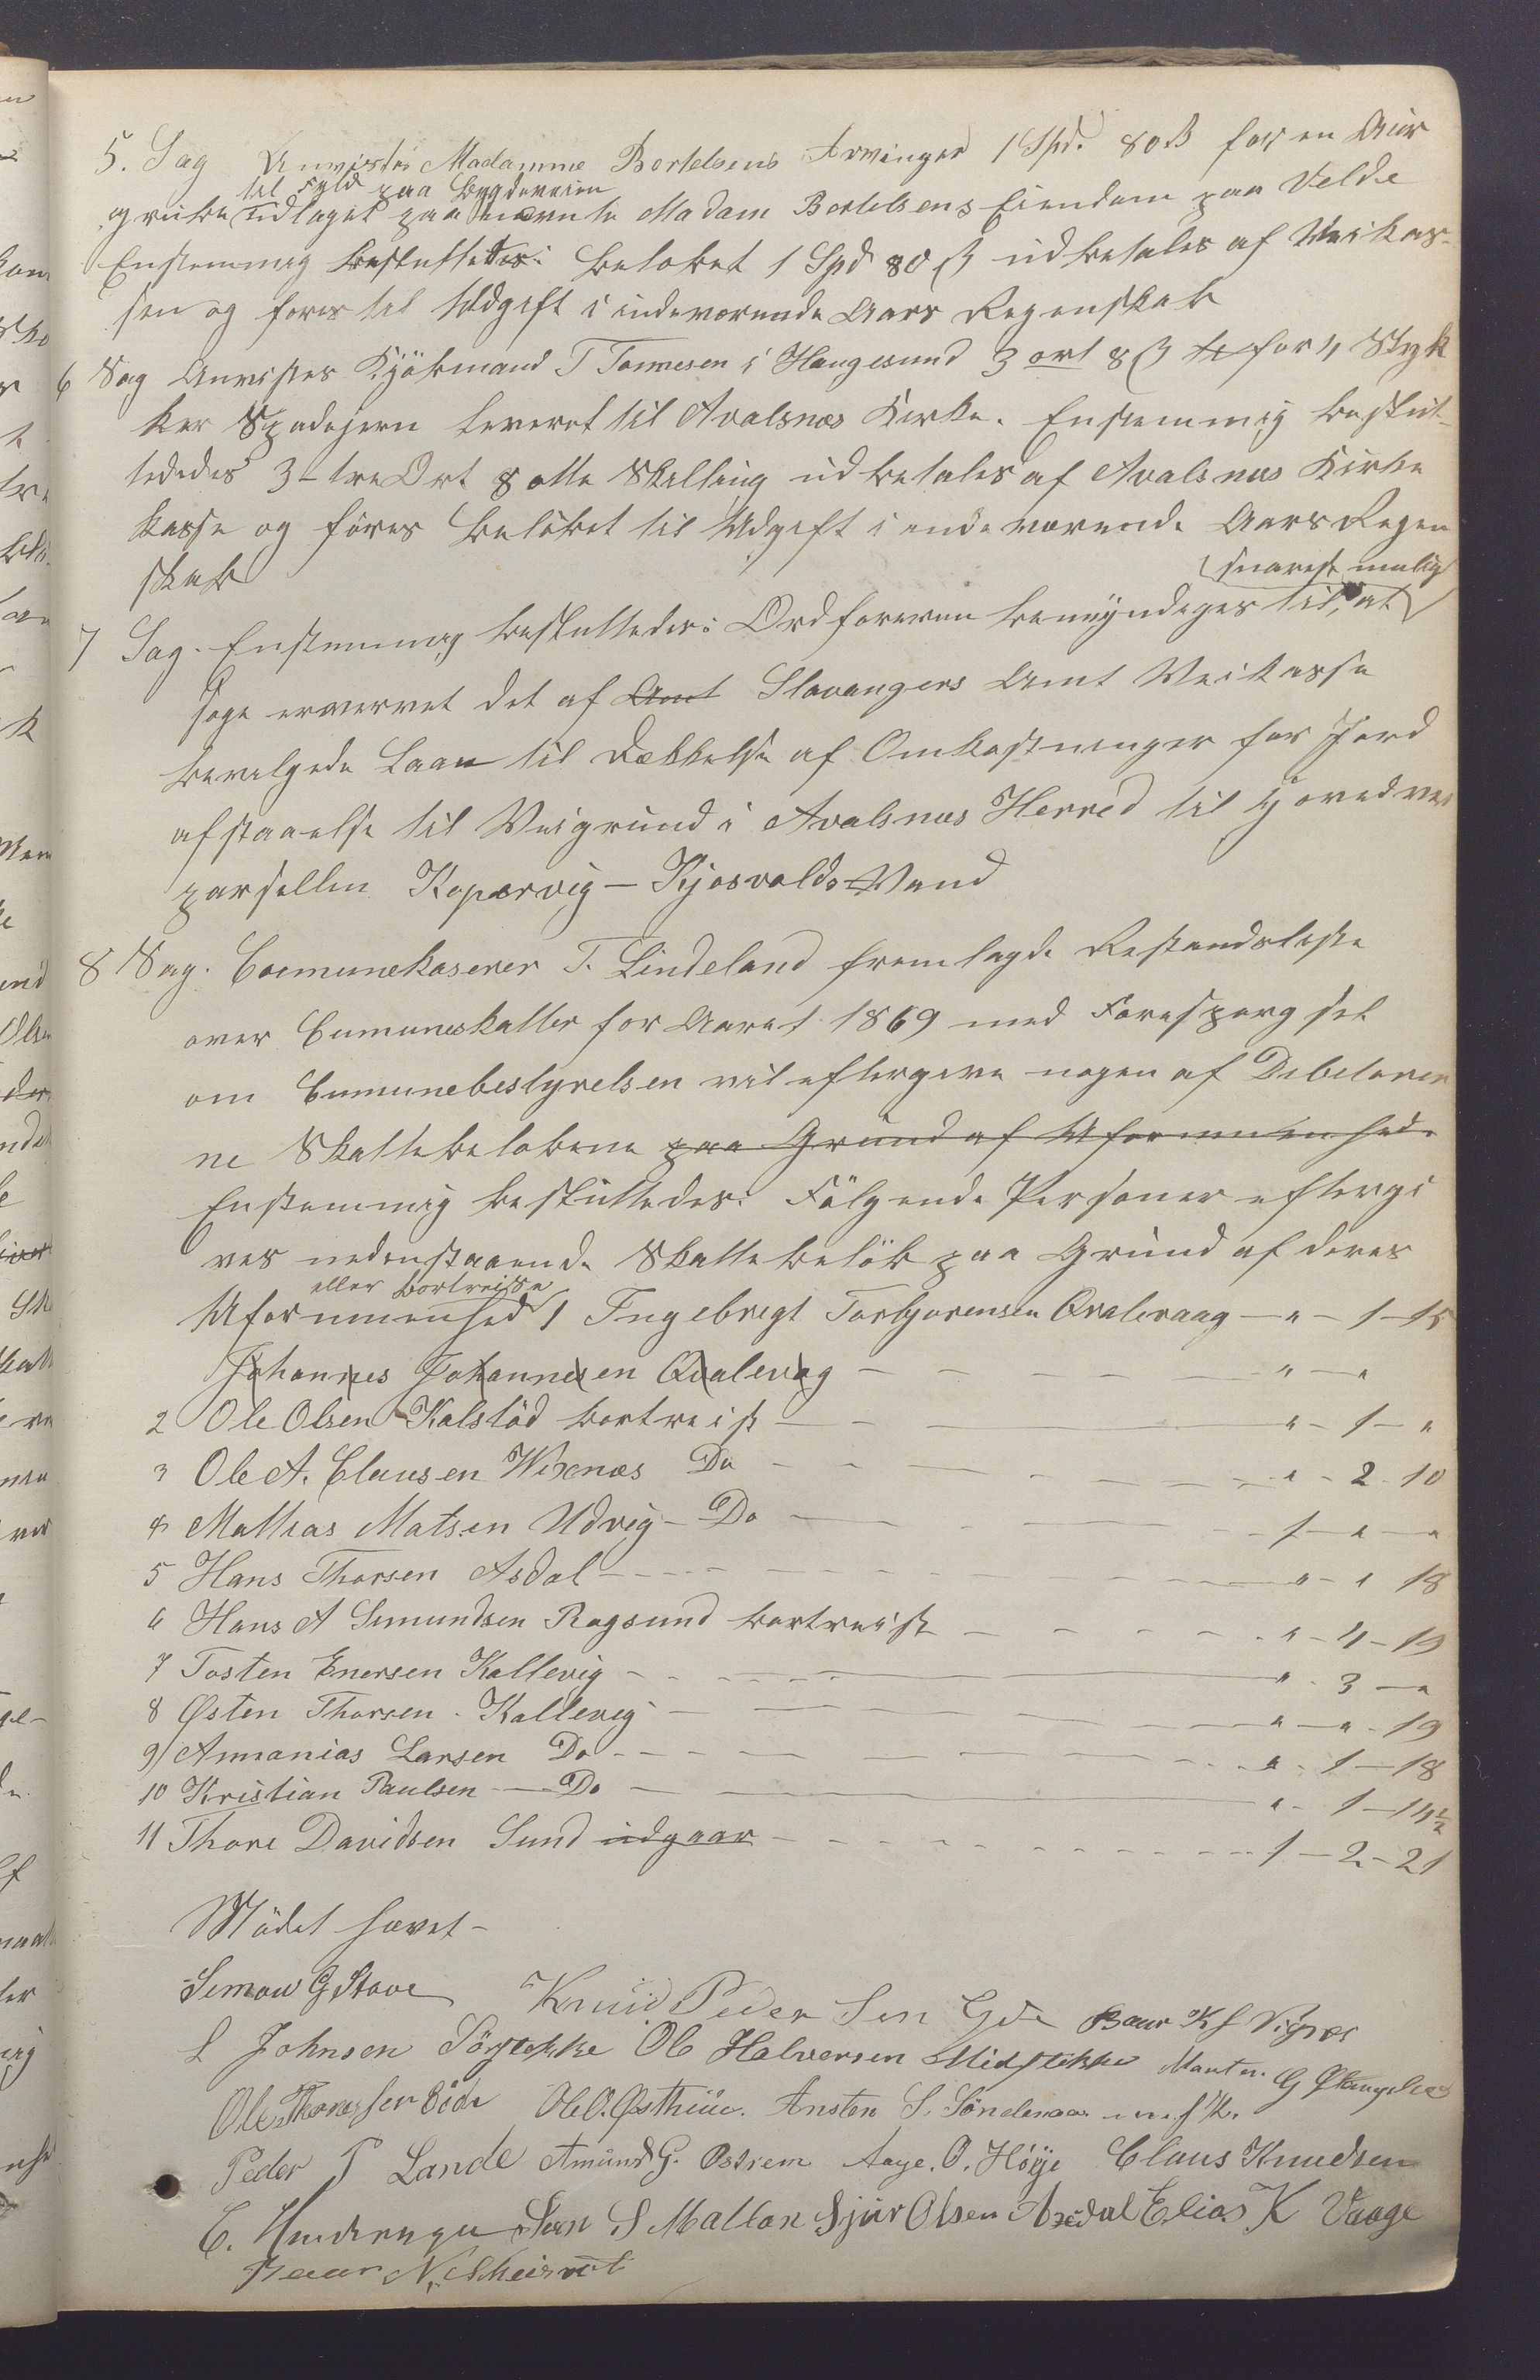 5. Sag Anvistes Madamme Bertelsens Arvinger 1 Spd. 80 ß for en Aur
til Fyld paa Bygdeveien
grube udlaget paa nævnte Madam Bertelsens Eiendom paa Velde
Enstemmig besluttedes: Beløbet 1 Spd 80 ß udbetales af Veikas-
sen og føres til Udgift i indeværende Aars Regenskab
6 Sag Anvistes Kjøbmand T Tonnesen i Haugesund 3 ort 8 ß for 4 Styk
ker Spadejern leveret til Avalsnæs Kirke. Enstemmig beslut-
tedes 3- tre Ort 8 otte Skilling udbetales af Avalsnæs Kirke
kasse og føres Beløbet til Udgift i indeværende Aars Regen
skab
snarest mulig
7 Sag. Enstemmig besluttedes: Ordføreren bemyndiges til, at
søge erværvet det af Amt Stavangers Amt Veikasse
bevilgede Laan til Dækkelse af Omkostninger for Jord
afstaaelse til Veigrund i Avalsnæs Herred til Hovedvei
parsellen Kopervig - Kjosvolds Vand
8 Sag. Comunekaserer T. Lindeland fremlagde Restandsliste
over Comuneskatter for Aaret 1869 med Forespørgsel
om Comunebestyrelsen vil eftergive nogen af Debitorer
ne Skattebeløbene paa Grund af Uformuenhed.
Enstemmig besluttedes: Følgende Personer eftergi
ves nedenstaaende Skattebeløb paa Grund af deres
eller bortreise
Uformuenhed 1 Ingebregt Torbjorensen Qvalevaag — " - 1 - 15
Johannes Johannesen Qvalevag — " — "
2 Ole Olsen Kalstöd bortreist — " - 1 - "
3 Ole A. Clausen Wixnæs Do — " - 2 - 10
4 Mathias Matsen Udvig - Do — 1 - " - "
5 Hans Thorsen Asdal — " - " 18
6 Hans A Simundsen Røgsund bortreist — " - 4 - 19
7 Tosten Enersen Kallevig — " - 3 - "
8 Østen Thorsen - Kallevig — " - " - 19
9 Annanias Larsen Do — " - 1 - 18
10 Kristian Paulsen — Do — " - 1 - 14½
11 Thore Davidsen Sund udgaar — 1 - 2 - 21
Mödet hævet -
Simon G Stave Knud Peder Sen Eide Baar K S Vignes
L Johnsen Sörstokke Ole Halvorsen Midstokke G Stangeland
Ole Thoressen Böde Ole O. Østhuue. Ansten S. Söndenaa
Peder T Lande Amund G. Østrem Aage. O. Höyje Claus Knudsen
E. S Maltan Sjur Olsen Asdal Elias K Vaage
Baar N. Skeisvol